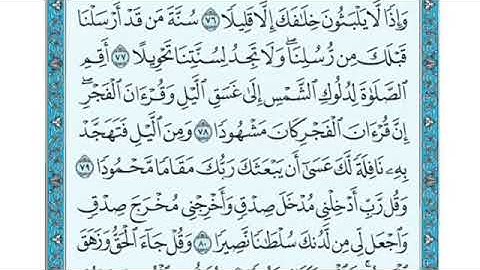 وَإِذٗا لَّا يَلۡبَثُونَ خِلَٰفَكَ إِلَّا قَلِيلٗا ٧٦ سُنَّةَ مَن قَدۡ أَرۡسَلۡنَا
قَبۡلَكَ مِن رُّسُلِنَاۖ وَلَا تَجِدُ لِسُنَّتِنَا تَحۡوِيلًا ٧٧ أَقِمِ
ٱلصَّلَوٰةَ لِدُلُوكِ ٱلشَّمۡسِ إِلَىٰ غَسَقِ ٱلَّيۡلِ وَقُرۡءَانَ ٱلۡفَجۡرِۖ
إِنَّ قُرۡءَانَ ٱلۡفَجۡرِ كَانَ مَشۡهُودٗا ٧٨ وَمِنَ ٱلَّيۡلِ فَتَهَجَّدۡ
بِهِۦ نَافِلَةٗ لَّكَ عَسَىٰٓ أَن يَبۡعَثَكَ رَبُّكَ مَقَامٗا مَّحۡمُودٗا ٧٩
وَقُل رَّبِّ أَدۡخِلۡنِي مُدۡخَلَ صِدۡقٖ وَأَخۡرِجۡنِي مُخۡرَجَ صِدۡقٖ
وَٱجۡعَل لِّي مِن لَّدُنكَ سُلۡطَٰنٗا نَّصِيرٗا ٨٠ وَقُلۡ جَآءَ ٱلۡحَقُّ وَزَهَقَ